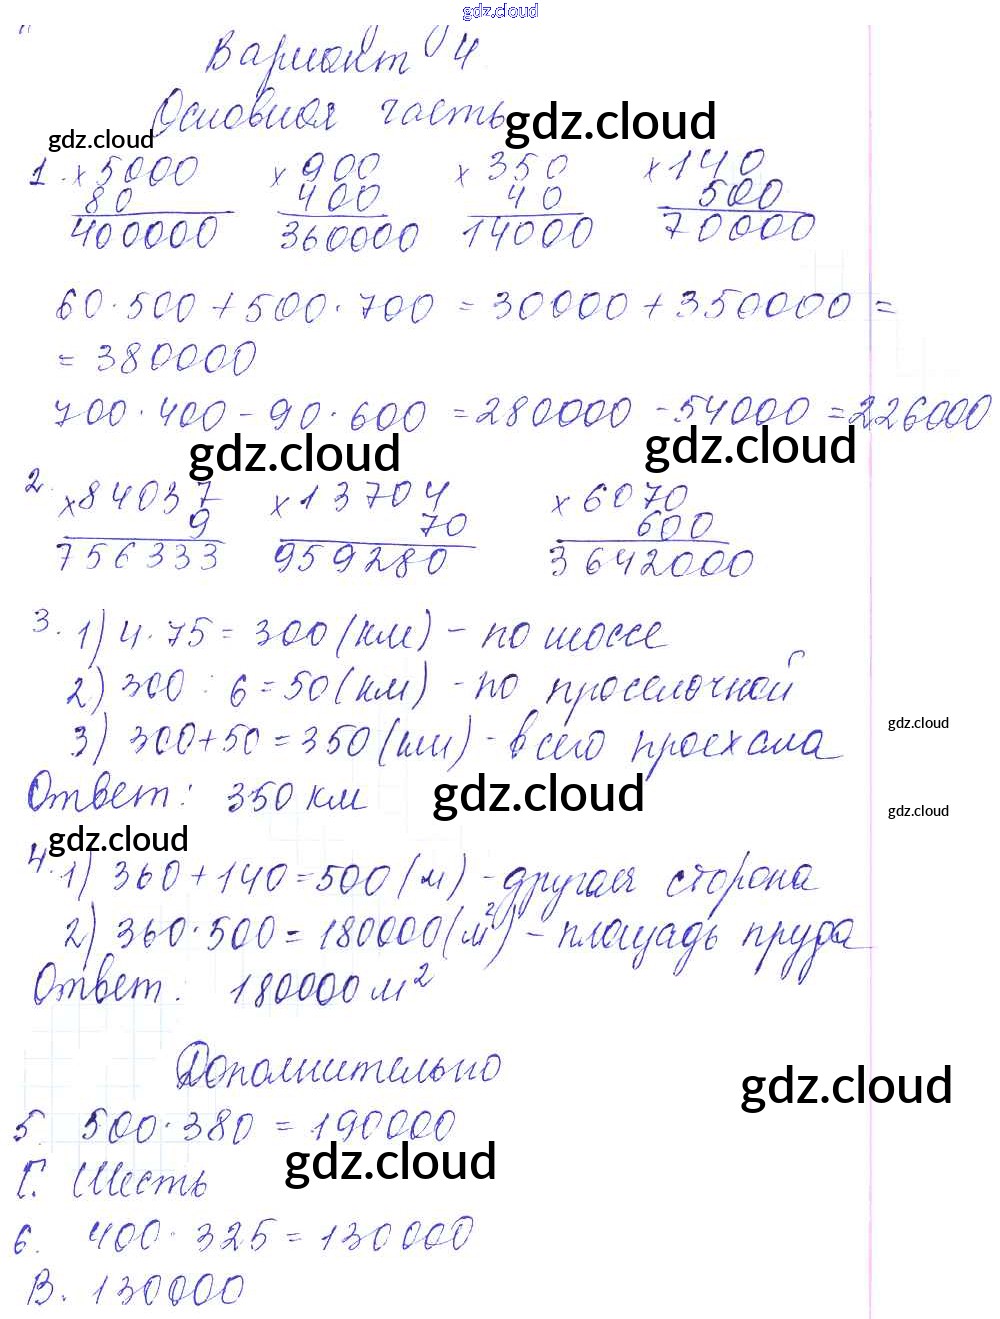 gdz.cloud
Вариант 4
Основная часть
gdz.cloud
gdz.cloud
1. × 5000 × 900 × 350 × 140
80 400 40 500
400000 360000 14000 70000
60 · 500 + 500 · 700 = 30000 + 350000 =
= 380000
700 · 400 - 90 · 600 = 280000 - 54000 = 226000
gdz.cloud gdz.cloud
2. × 84037 × 13704 × 6070
9 70 600
756333 959280 3642000
3. 1) 4 · 75 = 300 (км) - по шоссе
2) 300 : 6 = 50 (км) - по проселочной
gdz.cloud
3) 300 + 50 = 350 (км) - всего проехала
Ответ: 350 км
gdz.cloud
gdz.cloud
gdz.cloud
4. 1) 360 + 140 = 500 (м) - другая сторона
2) 360 · 500 = 180000 (м²) - площадь пруда
Ответ: 180000 м²
Дополнительно
gdz.cloud
5. 500 · 380 = 190000
gdz.cloud
Г. Шесть
6. 400 · 325 = 130000
В. 130000